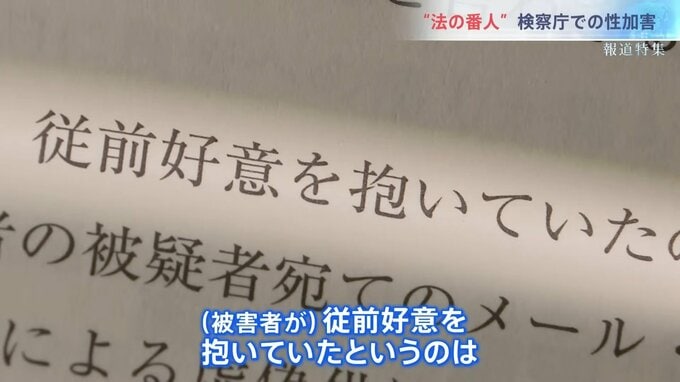 “法の番人” 検察庁での性加害
報道特集
従前好意を抱いていたの
者の被疑者宛てのメール・
による虚偽供
(被害者が) 従前好意を
抱いていたというのは